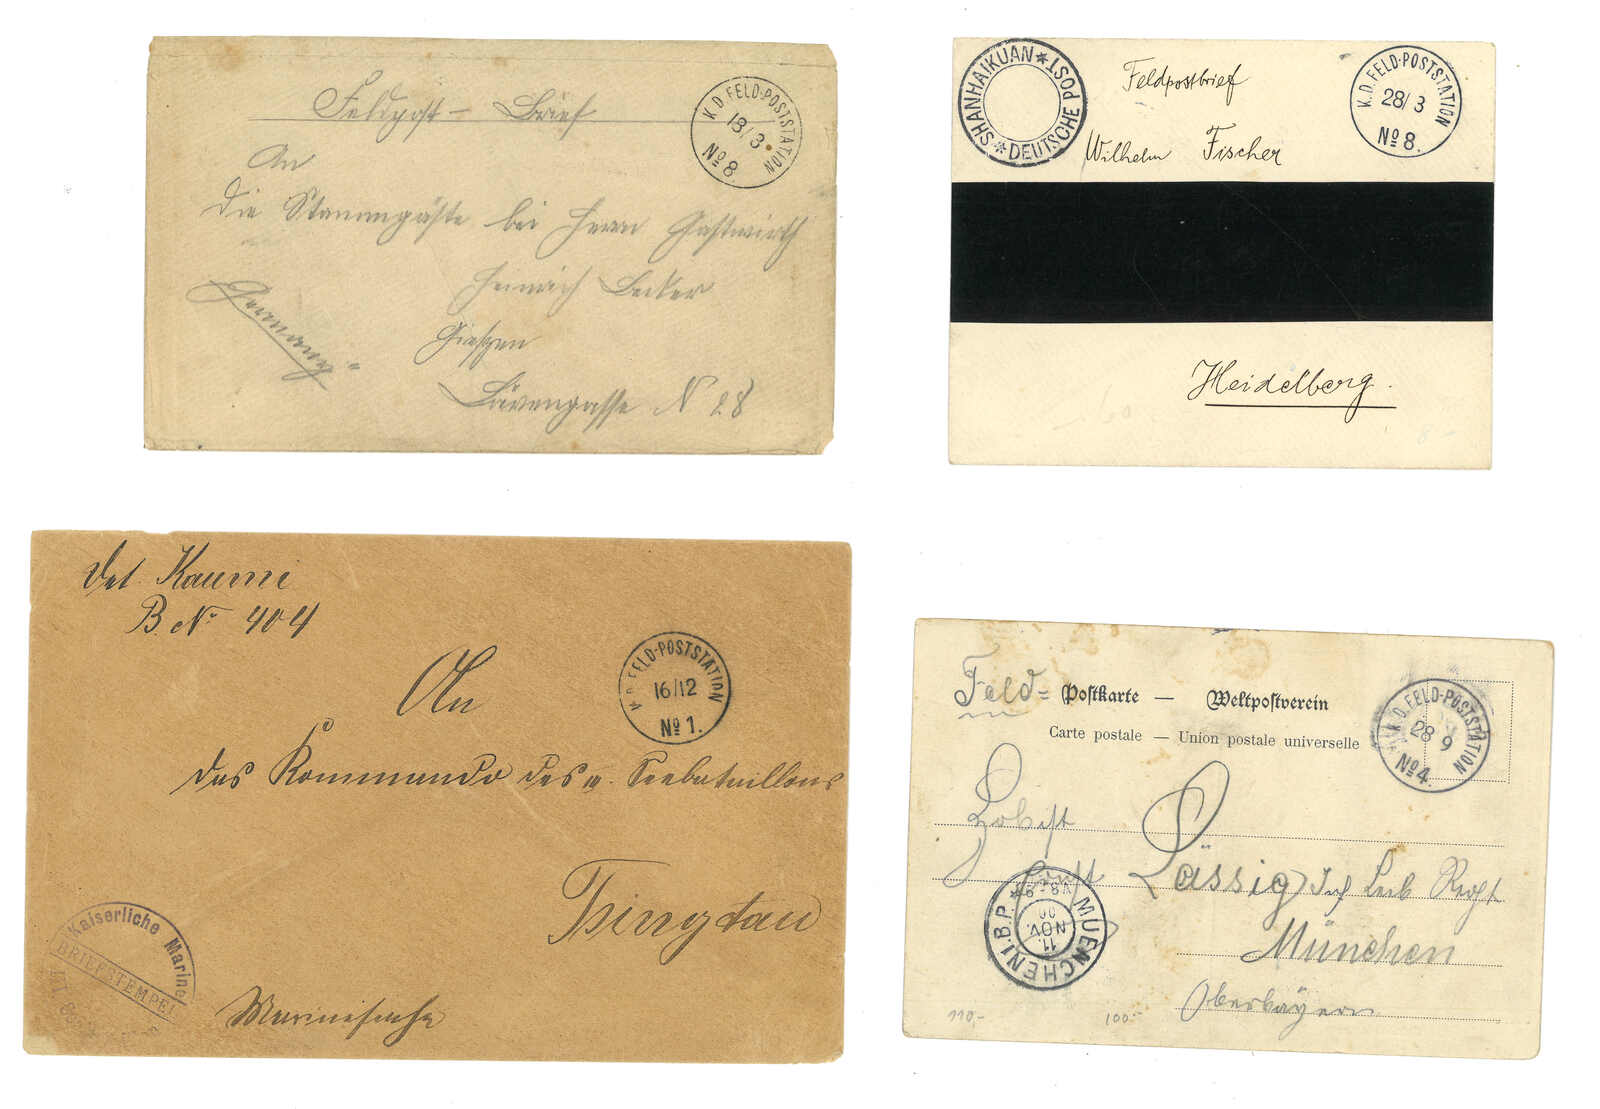 Feldpost - Brief
K.D. FELD-POSTSTATION
18/3
No 8.
An
die Stammgäste bei Herrn Gastwirth
Heinrich Becker
Gießen
Germany
Lävengasse N 28
SHANHAIKUAN * DEUTSCHE POST *
Feldpostbrief
Wilhelm Fischer
K.D. FELD-POSTSTATION
28/3
No 8.
Heidelberg.
Det. Kaumi
B. No 404
An
K.D. FELD-POSTSTATION
16/12
No 1.
das Kommando des Seebataillons
Tsingtau
Kaiserliche Marine
BRIEFSTEMPEL
Marinesache
Feld= Postkarte — Weltpostverein
Carte postale — Union postale universelle
K.D. FELD-POSTSTATION
28 9
No 4.
Lässig
MUENCHEN I.B.P. *
8-9
11.
NOV.
00
München
Oberbayern
110,-
100.-